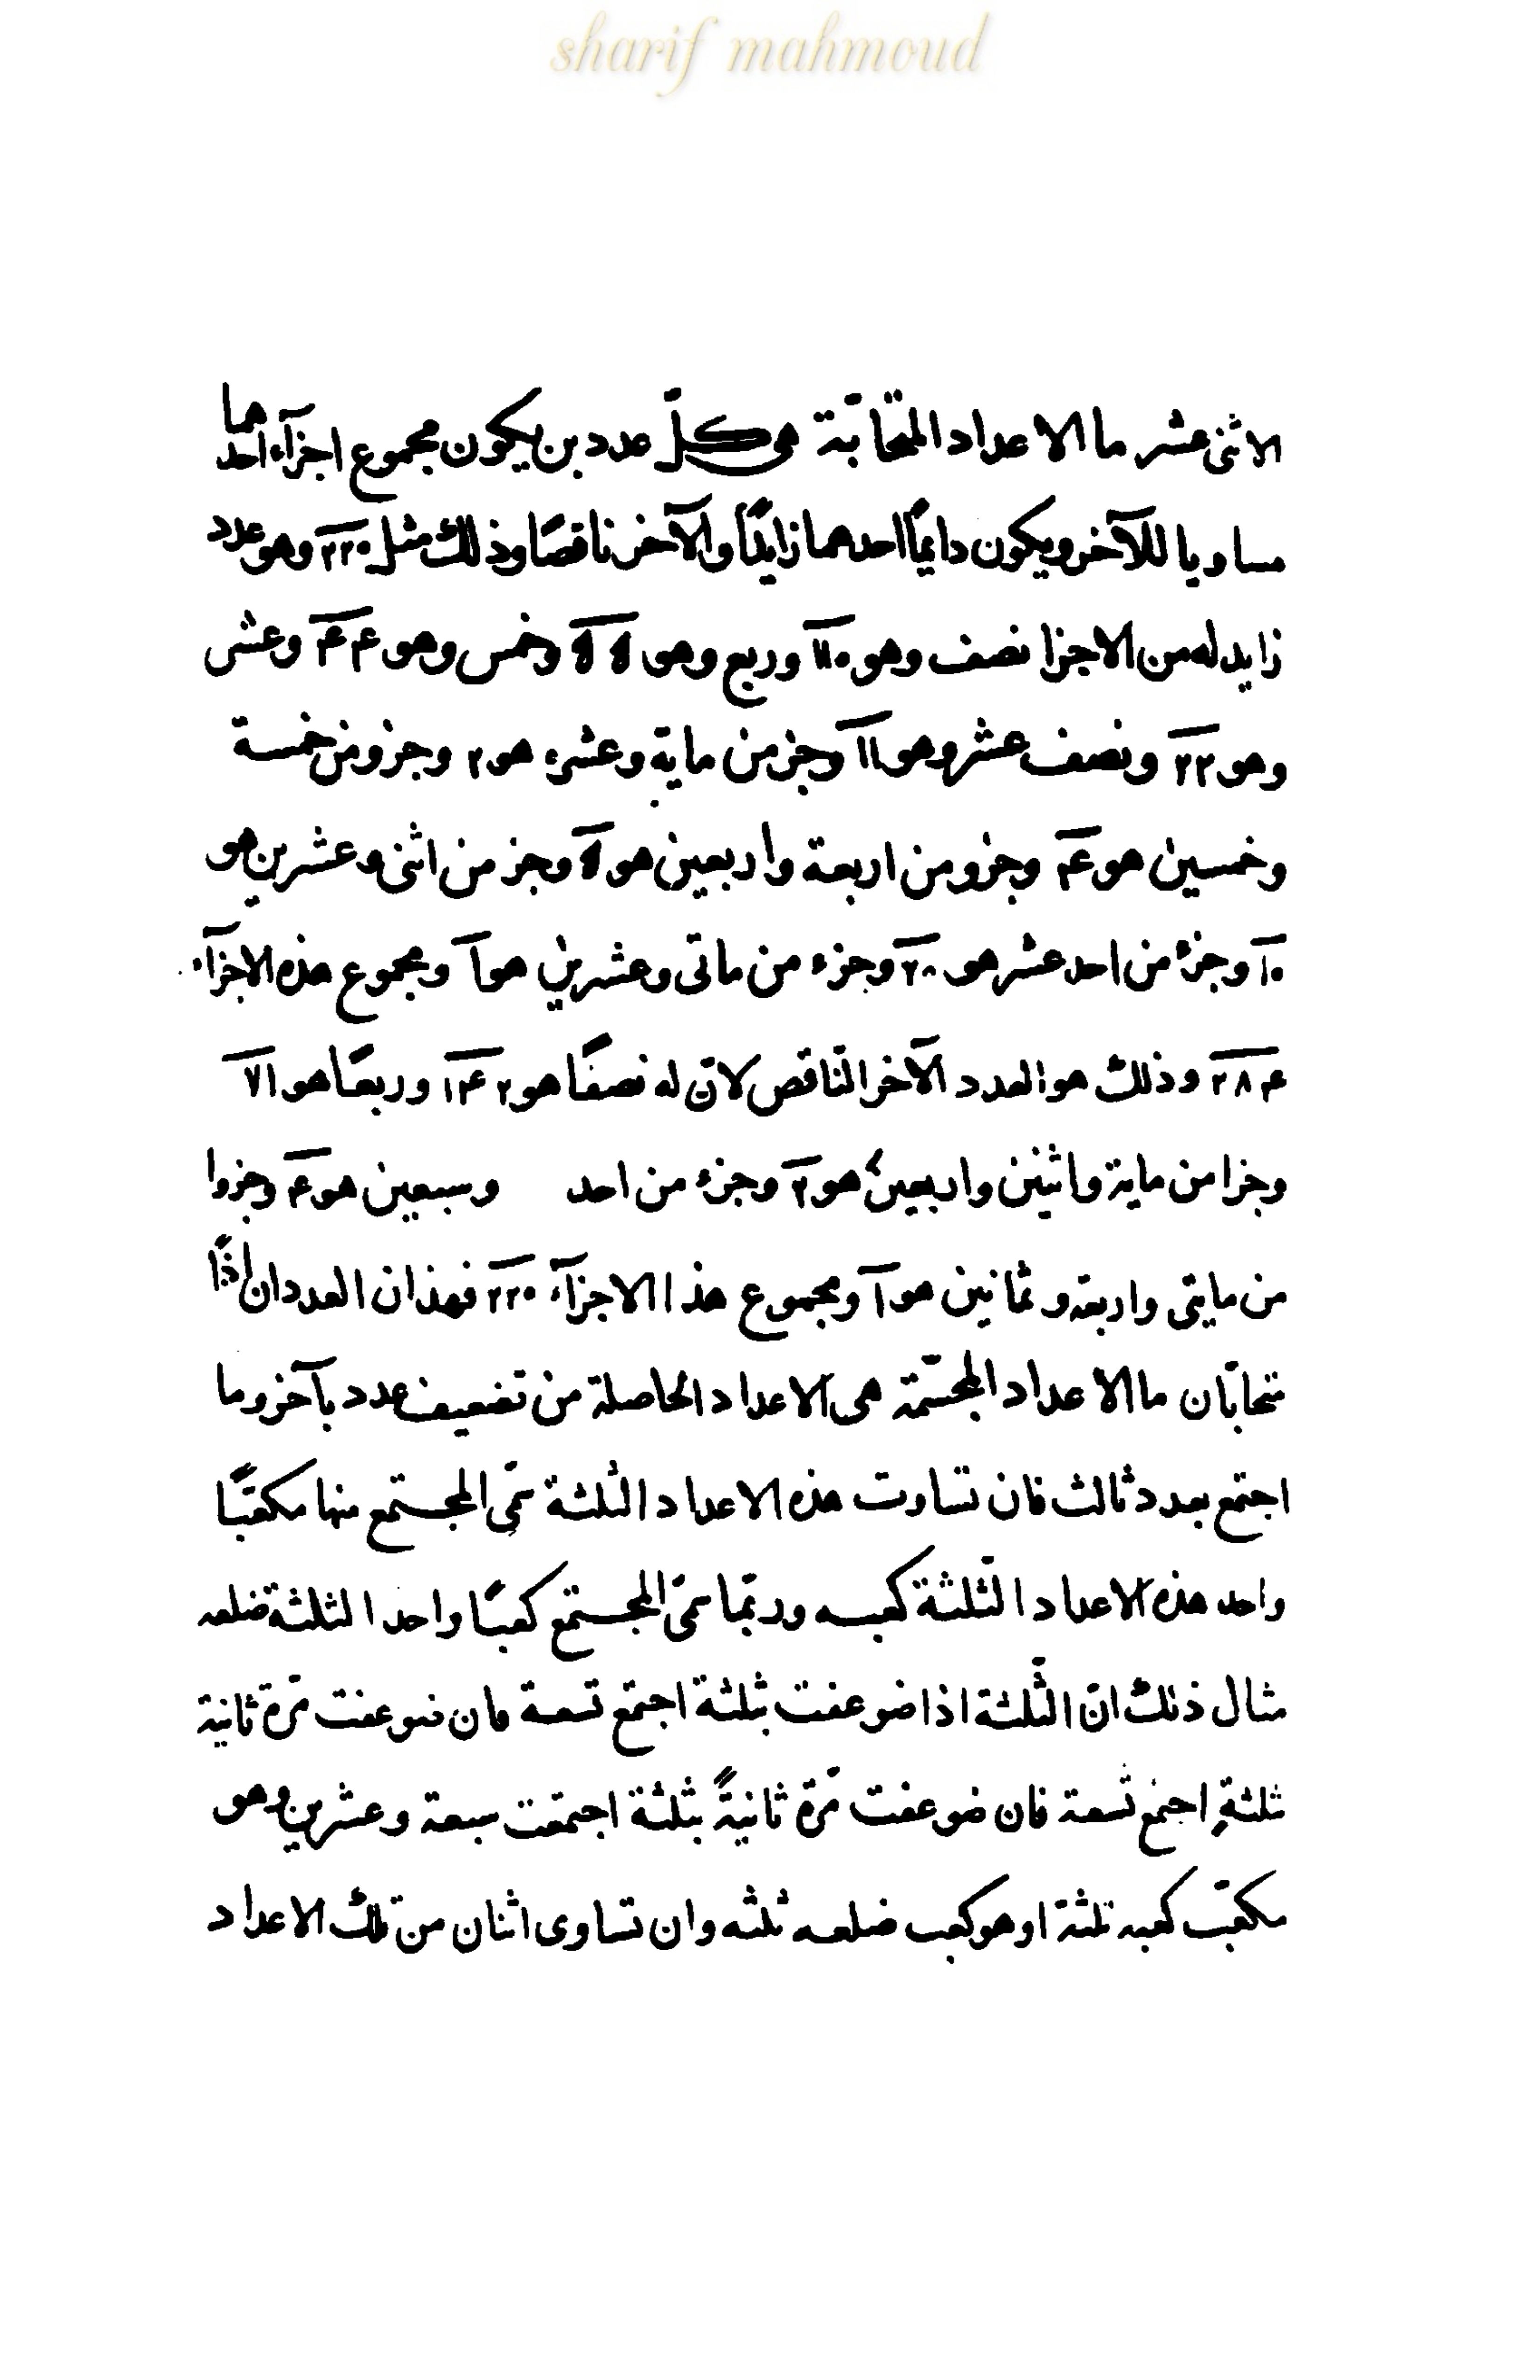 sharif mahmoud
الاثنى عشر ما الاعداد المتحابّة هى كلّ عددين يكون مجموع اجزآء احدهما
مساويا للآخر ويكون دايمًا احدهما زايدًا والآخر ناقصًا وذلك مثل ٢٢٠ وهو عدد
زايد له من الاجزا نصف وهو ١١٠ وربع وهو ٥٥ وخمس وهو ٤٤ وعشر
وهو ٢٢ ونصف عشر وهو ١١ وجز من ماية وعشره هو ٢ وجزو من خمسة
وخمسين هو ٤ وجزو من اربعة واربعين هو ٥ وجز من اثنى وعشرين هو
١٠ وجزء من احد عشر هو ٢٠ وجزء من ماتى وعشرين هو ١ ومجموع هذه الاجزآء
٢٨٤ وذلك هو العدد الآخر النّاقص لانّ له نصفًا هو ١٤٢ وربعًا هو ٧١
وجزا من ماية واثنين واربعين هو ٢ وجزء من احد وسبعين هو ٤ وجزوا
من مايتى واربعة وثمانين هو ١ ومجموع هذا الاجزآء ٢٢٠ فهذان العددان اذًا
متحابّان ما الاعداد المجسّمة هى الاعداد الحاصلة من تضعيف عدد بآخر وما
اجتمع بعدد ثالث فان تساوت هذه الاعداد الثلثة سمّى المجتمع منها مكعّبًا
واحد هذه الاعداد الثّلثة كعبه وربّما سمّى المجتمع كعبًا واحد الثلثة ضلعه
مثال ذلك انّ الثّلثة اذا ضوعفت بثلثة اجتمع تسعة فان ضوعفت مرّة ثانية
ثلثةٍ اجتمع تسعة فان ضوعفت مرّة ثانيةً بثلثة اجتمعت سبعة وعشرين وهو
مكعّب كعبه ثلثة او هو كعب ضلعه ثلثه وان تساوى اثنان من تلك الاعداد